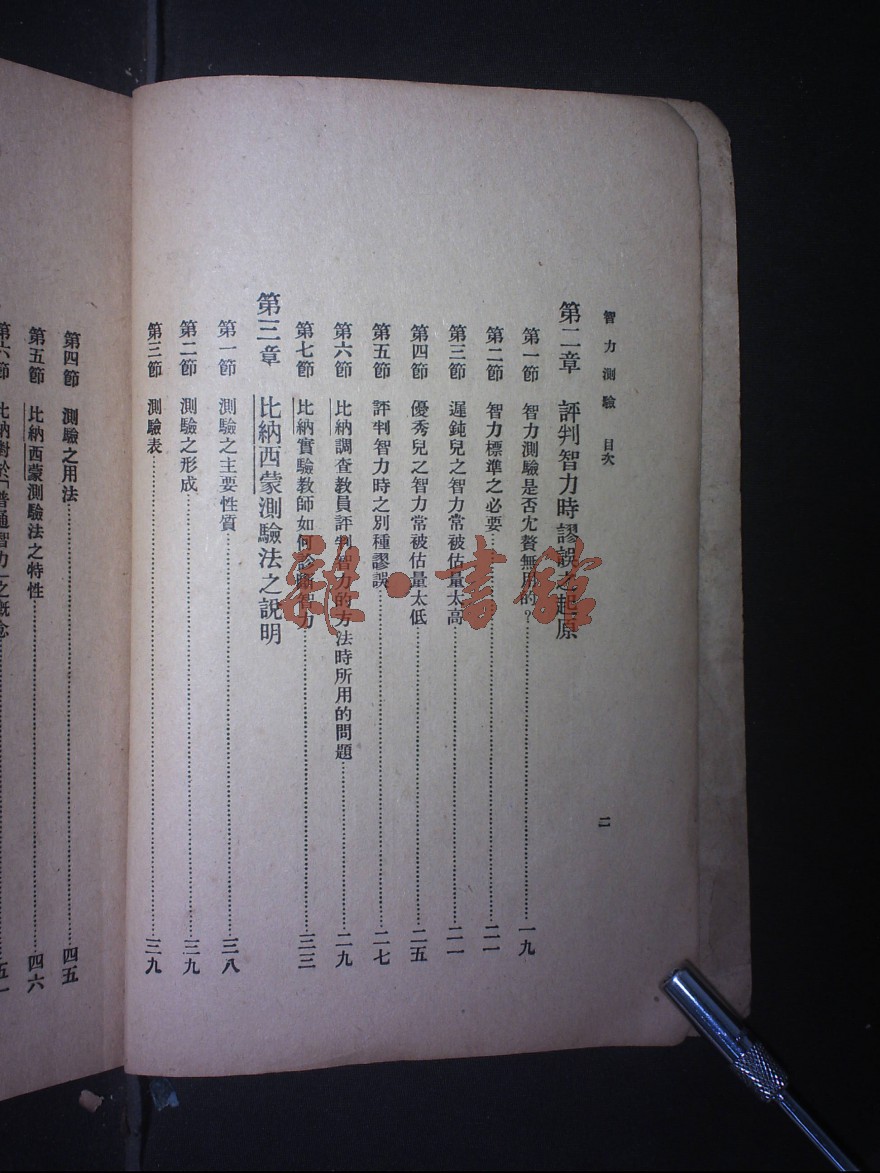 智力測驗 目次
二
第二章 評判智力時謬誤之起原
第一節 智力測驗是否尤贅無用的？……一九
第二節 智力標準之必要……二一
第三節 遲鈍兒之智力常被估量太高……二一
第四節 優秀兒之智力常被估量太低……二五
第五節 評判智力時之別種謬誤……二七
第六節 比納調查教員評判智力的方法時所用的問題……二九
第七節 比納實驗教師如何診斷智力……三三
第三章 比納西蒙測驗法之說明
第一節 測驗之主要性質……三八
第二節 測驗之形成……三九
第三節 測驗表……三九
第四節 測驗之用法……四五
第五節 比納西蒙測驗法之特性……四六
第六節 比納對於「普通智力」之概念……五一
雜·書館